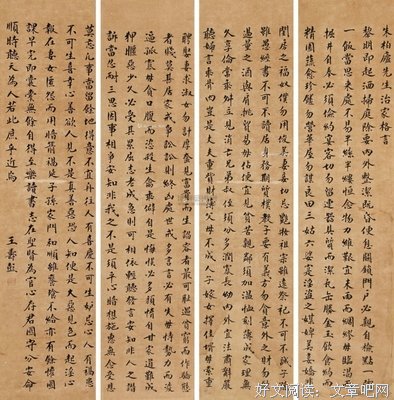 朱柏廬先生治家格言
黎明即起洒掃庭除要內外整潔既昏便息關鎖門戶必親自檢點一粥
一飯當思來處不易半絲半縷恒念物力維艱宜未雨而綢繆毋臨渴而
掘井自奉必須儉約宴客切勿留連器具質而潔瓦缶勝金玉飲食約而
精園蔬愈珍饈勿營華屋勿謀良田三姑六婆實淫盜之媒婢美妾嬌非
閨房之福奴僕勿用俊美妻妾切忌艷妝祖宗雖遠祭祀不可不誠子孫
雖愚經書不可不讀居身務期質樸教子要有義方勿貪意外之財勿飲
過量之酒與肩挑貿易勿佔便宜見貧苦親鄰須加溫恤刻薄成家理無
久享倫常乖舛立見消亡兄弟叔侄須分多潤寡長幼內外宜法肅辭嚴
聽婦言乖骨肉豈是丈夫重貲財薄父母不成人子嫁女擇佳壻毋索重
聘娶妻求淑女勿計厚奩見富貴而生諂容者最可恥遇貧窮而作驕態
者賤莫甚居家戒爭訟訟則終凶處世戒多言言多必失毋恃勢力而凌
逼孤寡毋貪口腹而恣殺生禽乖僻自是悔悞必多頹惰自甘家道難成
狎暱惡少久必受其累屈志老成急則可相依輕聽發言安知非人之譖
訴當忍耐三思因事相爭安知非我之不是須平心暗想施惠無念受恩
莫忘凡事當留餘地得意不宜再往人有喜慶不可生妒忌心人有禍患
不可生喜幸心善欲人見不是真善惡恐人知便是大惡見色而起淫心
報在妻女匿怨而用暗箭禍延子孫家門和順雖饔飧不繼亦有餘歡國
課早完即囊橐無餘自得至樂讀書志在聖賢為官心存君國守分安命
順時聽天為人若此庶乎近焉
王壽彭
好文阅读：文章吧网